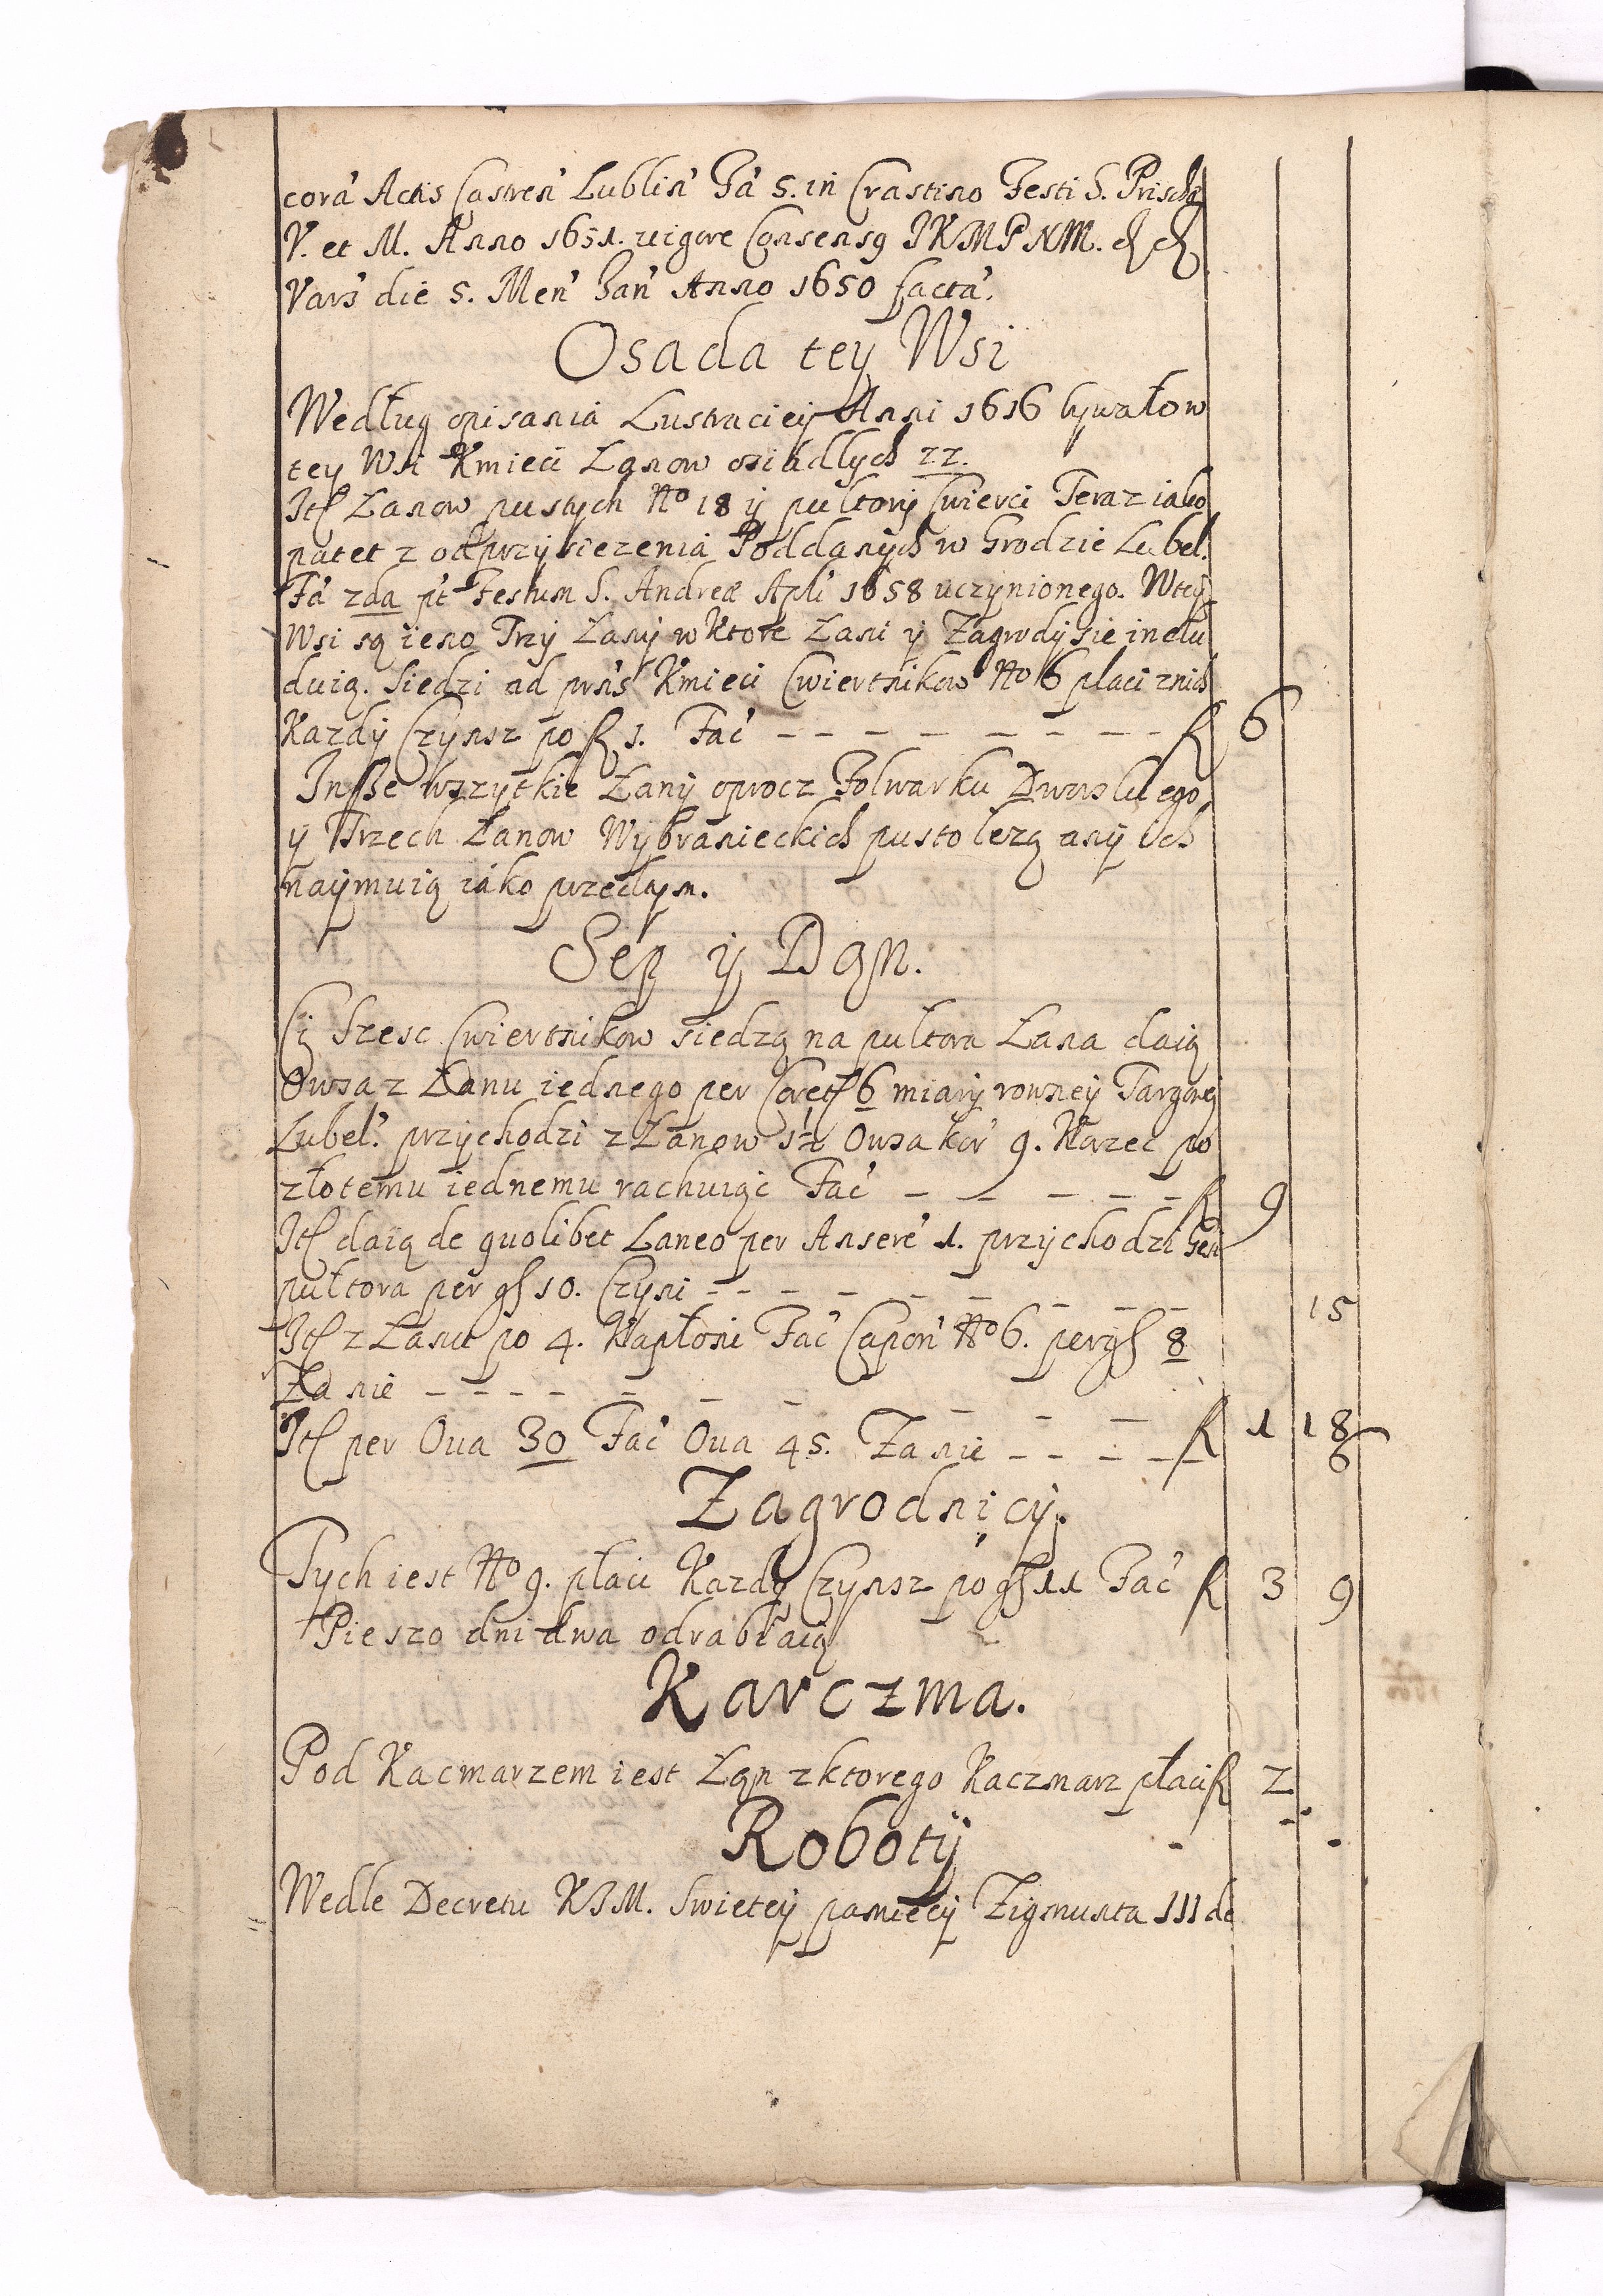 corā Actis Castreñ Lubliñ Fā 5. in Crastino Festi S. Priscæ
V. et M. Anno 1651. vigore Consensq JKMPNM.
Vars die 5. Meñ Jañ Anno 1650 factā.
Osada tey Wsi
Według opisania Lustraciey Anni 1616 bywało w
tey Wsi Kmieci Łanow osiadlych 22.
Itē Łanow pustych No 18 ÿ pułtorÿ Cwierci Teraz iako
patet z odprzysiezenia Poddanych w Grodzie Lubel.
Fā 2da pt Festum S. Andreæ Apli 1658 uczÿnionego. Wteÿ
Wsi są ieno Trzÿ Łanÿ w Ktore Łani ÿ Zagrodÿ sie inclu
duią. Siedzi ad prns Kmieci Cwiertnikow No 6 płaci znich
Kazdÿ Czynsz po fl 1. Fać - - - - - - - - - fl 6
Insze wszytkie Łanÿ oprocz Folwarku Dworskiego
ÿ Trzech Łanow Wÿbranieckich pusto lezą anÿ ich
naÿmuią iako przedtym.
Sep ÿ Dan.
Ci Szesc Cwiertnikow siedzą na pułtora Łana daią
Owsa z Łanu iednego per Coretſ 6 miarÿ rowneÿ Targoweÿ
Lubel. przÿchodzi z Łanow 1½ Owsa kor 9. Korzec po
złotemu iednemu rachuiąc Fać - - - - - fl 9
Itē daią de quolibet Laneo per Anserē 1. przÿchodzi Gesi
pułtora per gſ 10. Czÿni - - - - - - - - - 15
Itē z Łanu po 4. Kapłoni Fać Capoñ No 6. per gſ 8
Za nie - - - - - - - - - - fl 1 18
Itē per Oua 30 Fać Oua 45. Za nie - - - - - 6
Zagrodnicÿ.
Tych iest No 9. płaci Kazdÿ Czÿnsz po gſ 11 Fać fl 3 9
Pieszo dni dwa odrabiaią
Karczma.
Pod Kacmarzem iest Łan z ktorego Kaczmarz płaci fl 2
Robotÿ
Wedle Decretu KJM. Swieteÿ pamiecÿ Zigmunta III de